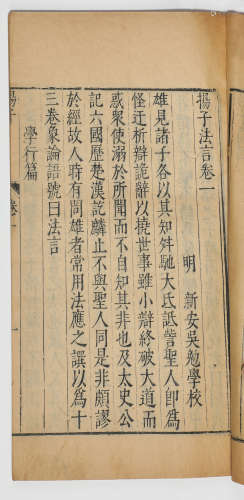 揚子法言卷一
明 新安吳勉學校
雄見諸子各以其知舛馳大氐詆訾聖人即爲
怪迂析辯詭辭以撓世事雖小辯終破大道而
惑衆使溺於所聞而不自知其非也及太史公
記六國歷楚漢訖麟止不與聖人同是非頗謬
於經故人時有問雄者常用法應之譔以爲十
三卷象論語號曰法言
學行篇